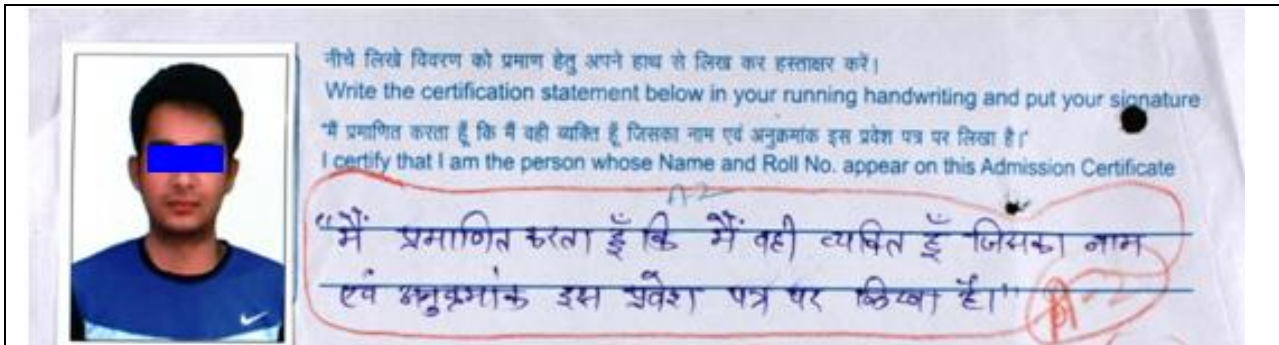 नीचे लिखे विवरण को प्रमाण हेतु अपने हाथ से लिख कर हस्ताक्षर करें।
Write the certification statement below in your running handwriting and put your signature
"मैं प्रमाणित करता हूँ कि मैं वही व्यक्ति हूँ जिसका नाम एवं अनुक्रमांक इस प्रवेश पत्र पर लिखा है।"
I certify that I am the person whose Name and Roll No. appear on this Admission Certificate
A2
"मैं प्रमाणित करता हूँ कि मैं वही व्यक्ति हूँ जिसका नाम
एवं अनुक्रमांक इस प्रवेश पत्र पर लिखा है।"